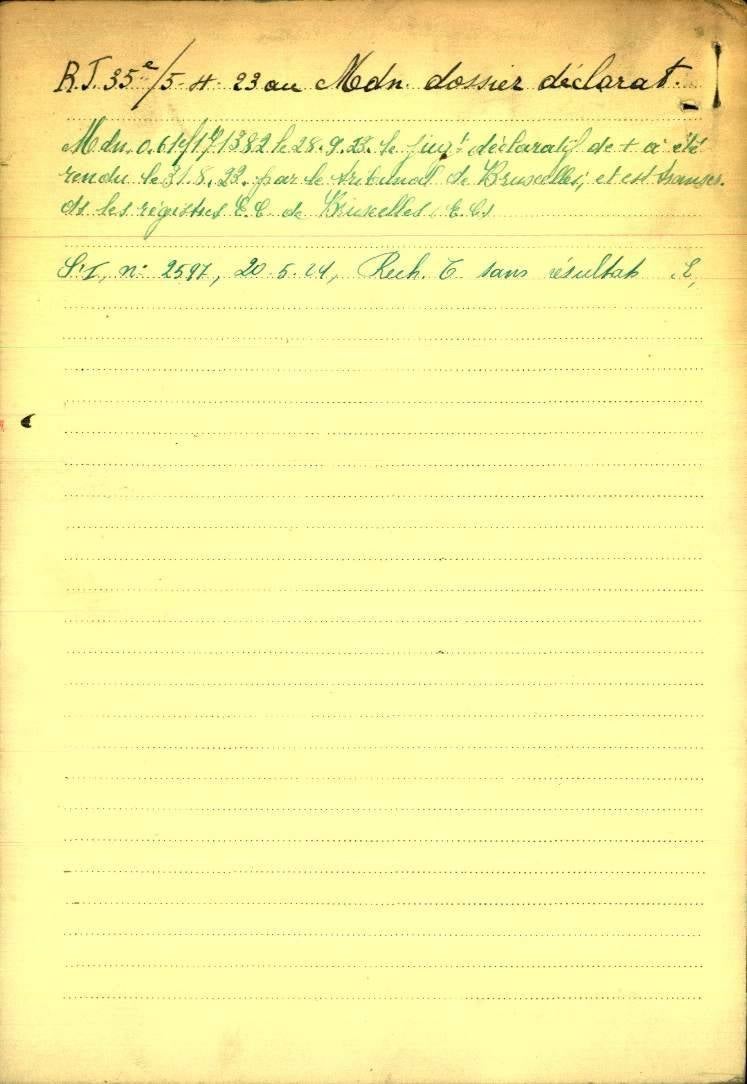 R.J. 35e/5-4-23 au Mdn. dossier déclarat.
Mdn. 0.61e/17 1382 le 28.9.23. le jugt déclaratif de + a été
rendu le 31.8.23. par le tribunal de Bruxelles, et est transcr.
ds les régistres E.C. de Bruxelles E.C.
S.I. n: 2597, 20.5.24, Rech. T sans résultat